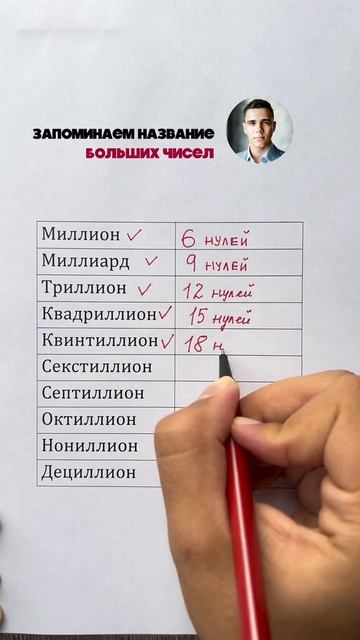 ЗАПОМИНАЕМ НАЗВАНИЕ
БОЛЬШИХ ЧИСЕЛ
Миллион 6 нулей
Миллиард 9 нулей
Триллион 12 нулей
Квадриллион 15 нулей
Квинтиллион 18 н
Секстиллион
Септиллион
Октиллион
Нониллион
Дециллион